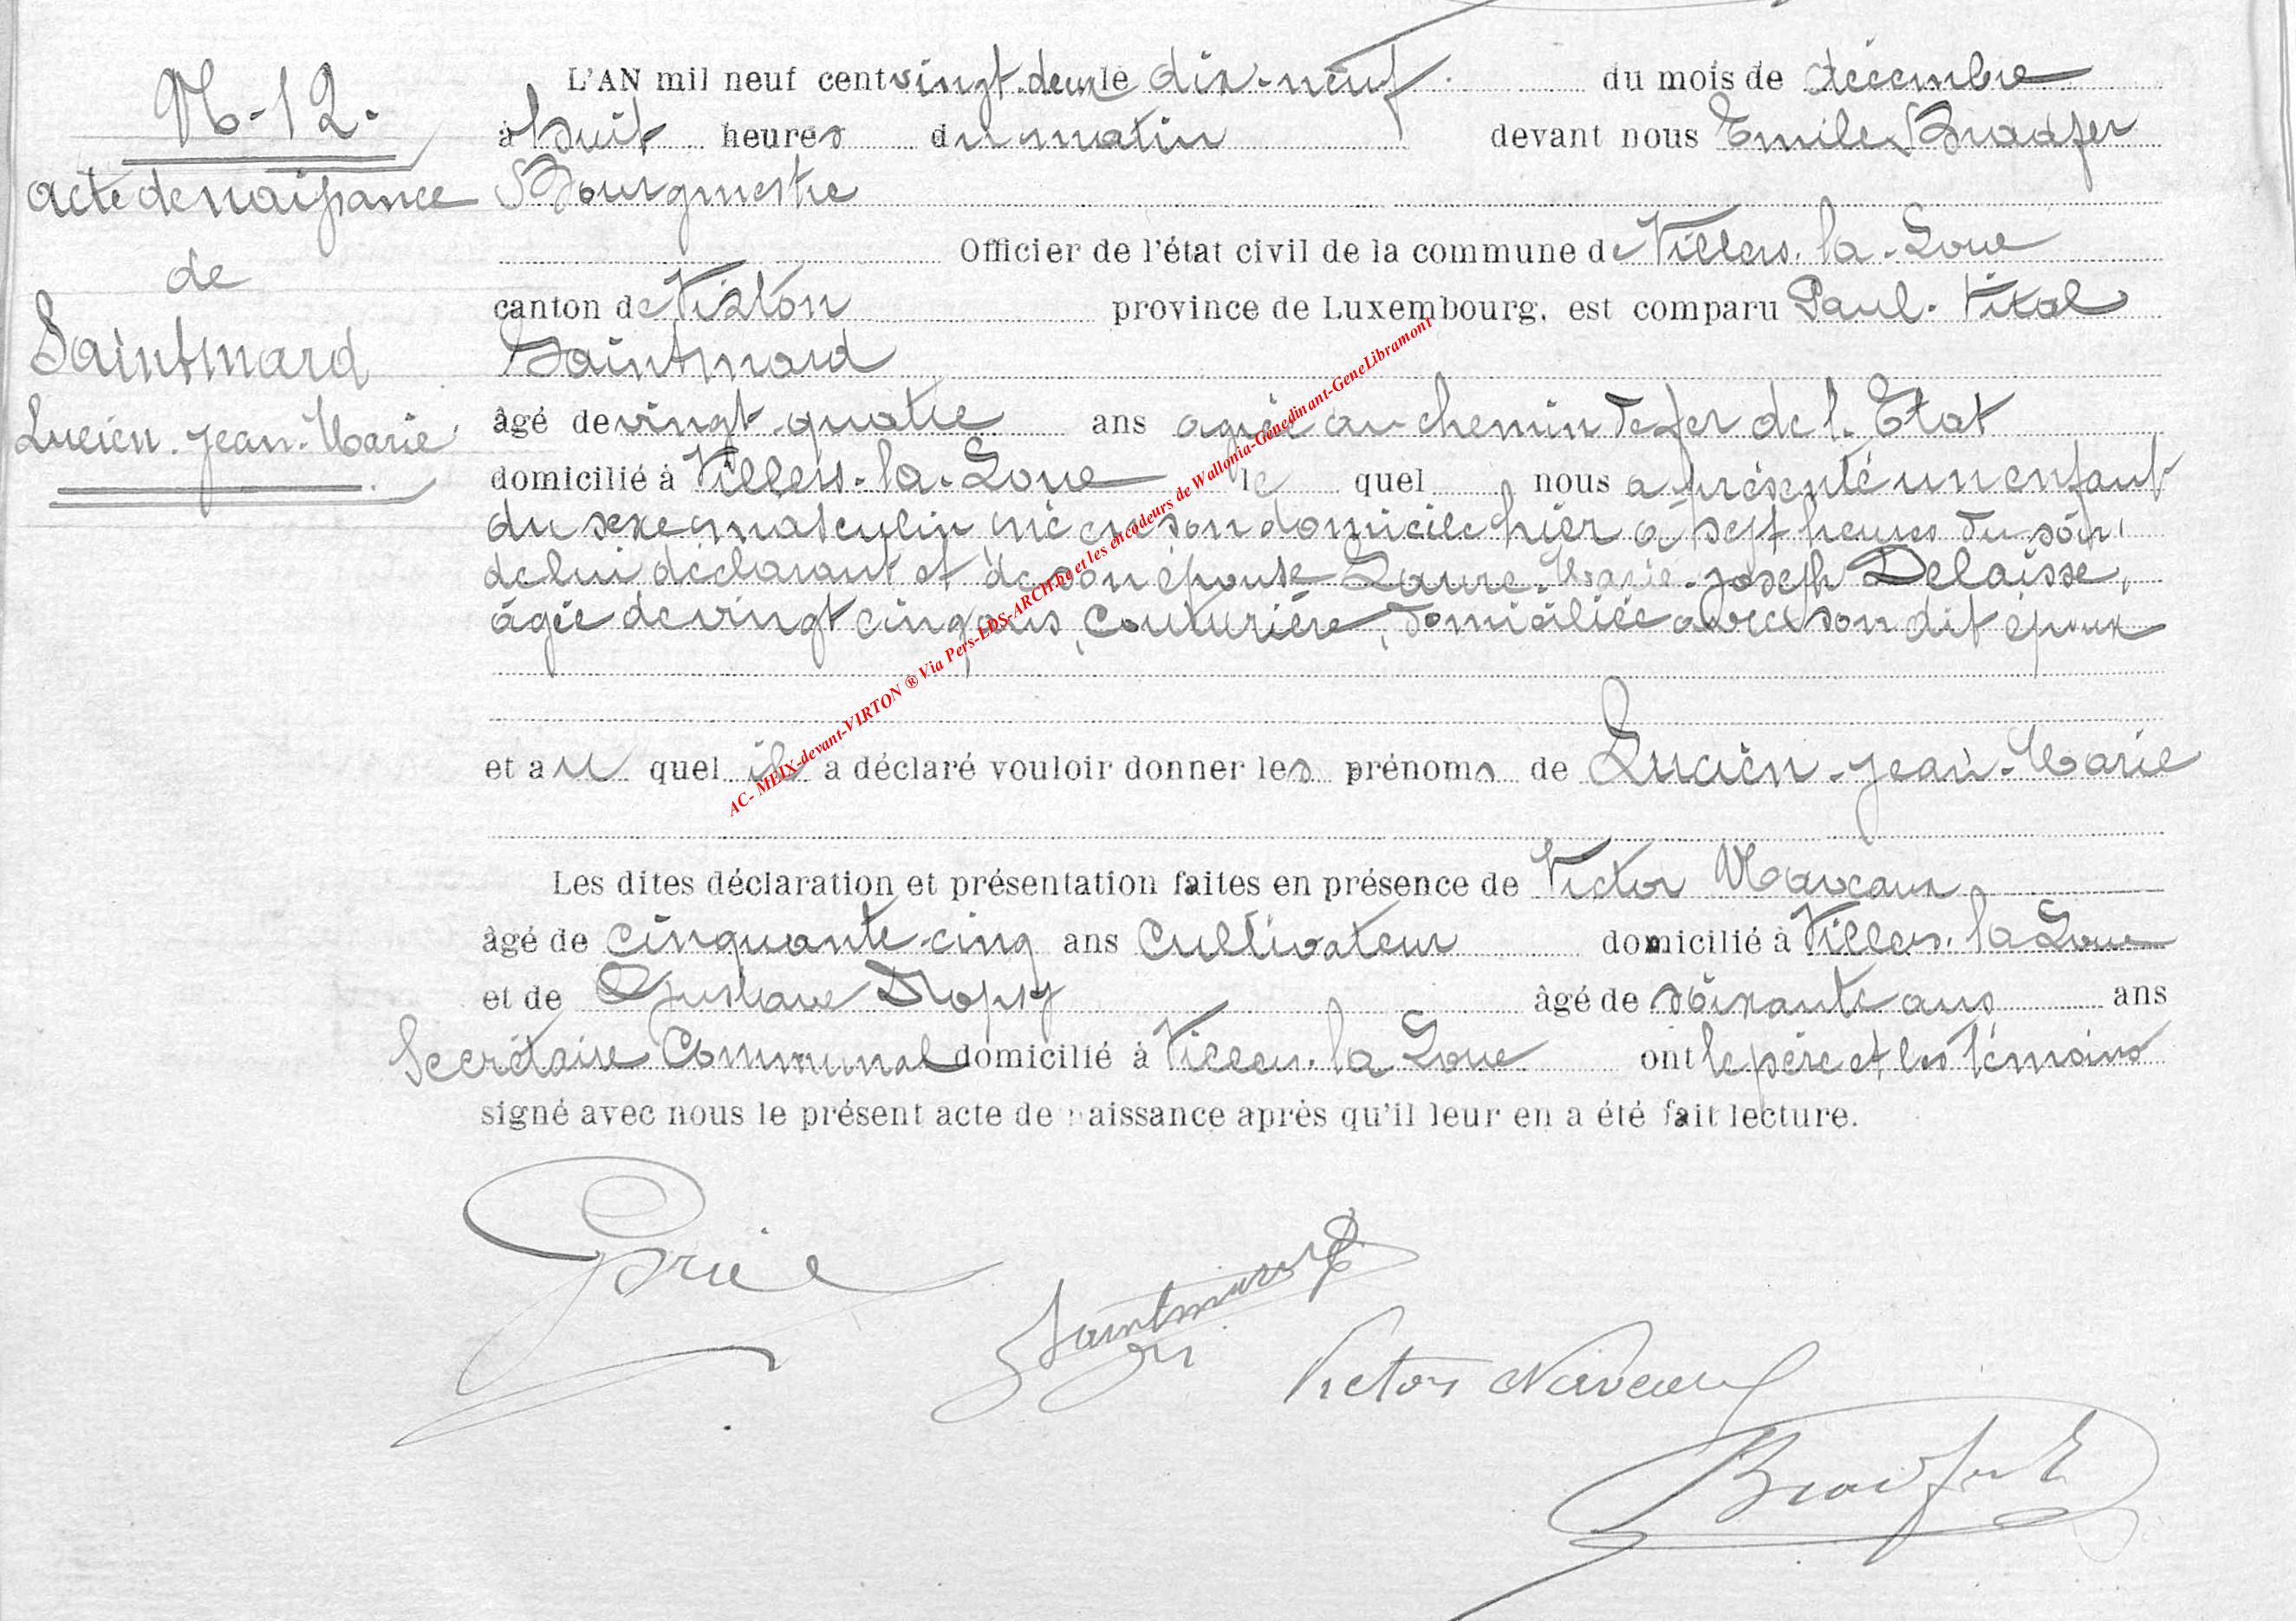 N-12.
acte de naissance
de
Saintmard
Lucien-Jean-Marie
L'AN mil neuf cent vingt-deux le dix-neuf du mois de décembre
à huit heures du matin devant nous Emile Bradfer
Bourgmestre
Officier de l'état civil de la commune de Villers-la-Loue
canton de Virton province de Luxembourg, est comparu Paul-Vital
Saintmard
âgé de vingt-quatre ans agréé au chemin de fer de l'Etat
domicilié à Villers-la-Loue le quel nous a présenté un enfant
du sexe masculin né en son domicile hier à sept heures du soir,
de lui déclarant et de son épouse Laure-Marie-Joseph Delaisse,
âgée de vingt cinq ans, Couturière, domiciliée avec son dit époux
et au quel il a déclaré vouloir donner les prénoms de Lucien-Jean-Marie
Les dites déclaration et présentation faites en présence de Victor
âgé de cinquante-cinq ans Cultivateur domicilié à Villers-la Loue
et de Gustave âgé de soixante ans ans
Secrétaire Communal domicilié à Villers-la Loue ont le père et les témoins
signé avec nous le présent acte de naissance après qu'il leur en a été fait lecture.
Saintmard
Victor
Bradfer E
AC- MEIX-devant-VIRTON ® Via Pers-LDS-ARCH.be et les encodeurs de Wallonia-Genedinant-GeneLibramont